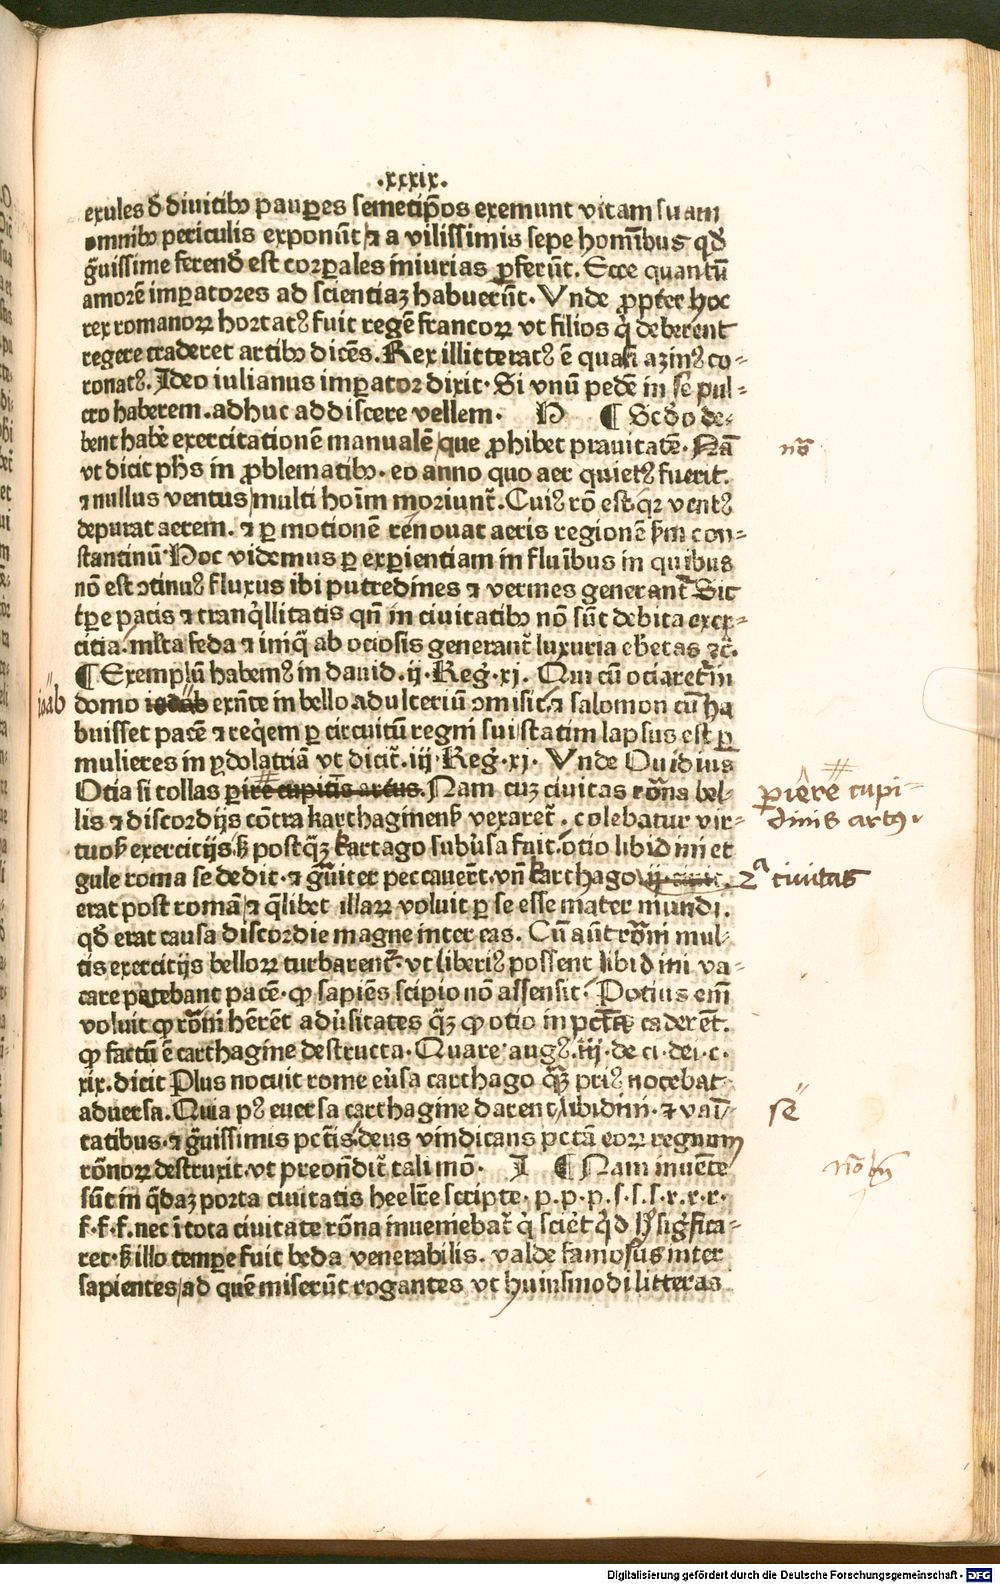 .xxxix.
exules đ diuitibꝰ paup̱es semetip̄os exemunt vitam suam
omnibꝰ periculis exponūt ⁊ a vilissimis sepe hom̄ibus qđ
g̃uissime ferenđ est corp̱ales iniurias p̱ferūt. Ecce quantū
amorē imp̱atores ad scientiaʒ habuerūt. Vnde ꝓpter hoc
rex romanoꝝ hortatꝰ fuit regē francoꝝ vt filios q̇ deberent
regere traderet artibꝰ dicēs. Rex illitteratꝰ ē quasi azinꝰ co⸗
ronatꝰ. Ideo iulianus imp̱ator dixit. Si vnū pedē in se pul⸗
cro haberem. adhuc addiscere vellem. H ¶ Scđo de⸗
bent habe᷑ exercitationē manualē que ꝓhibet prauitatē. Nā
vt dicit ph̄s in ꝓblematibꝰ. eo anno quo aer quietꝰ fuerit.
⁊ nullus ventus multi hoīm moriunt᷑. Cuiꝰ rō est. qꝛ ventꝰ
depurat aerem. ⁊ p̱ motionē renouat aeris regionē ẜm con⸗
stantinū Hoc videmus p̱ exp̱ientiam in fluībus in quibus
nō est ↄtinuꝰ fluxus ibi putredines ⁊ vermes generant᷑ Sic
tp̄e pacis ⁊ tranq̇llitatis qn̄ in ciuitatibꝰ nō sūt debita exer⸗
citia. ml̄ta feda ⁊ iniq̃ ab ociosis generant᷑ luxuria ebetas ⁊c̄.
¶ Exemplū habemꝰ in dauid. ij. Reg. xj. Qui cū ociaret᷑ in
ioab
domo exn̄te in bello adulteriū ↄmisit. ⁊ salomon cū ha
buisset pacē ⁊ req̇em p̱ circuitū regni sui statim lapsus est p̱
mulieres in ydolatriā vt dicit᷑. iij. Reg. xj. Vnde Ouidius
Ocia si tollas p̱ire cupit̄is artus. Nam cuʒ ciuitas rōna bel⸗
p̱iēre cupi⸗
dinis artꝰ.
lis ⁊ discordijs cōtra karthaginenẜ vexaret᷑. colebatur vir⸗
tuoẜ exercitijs. ẜ postq̃ʒ kartago subu᷑sa fuit. otio libidini et
gule roma se dedit. ⁊ g̃uiter peccauer̄t. vn̄ karthago
2ᵃ ciuitas
erat post romā ⁊ q̃libet illaꝝ voluit p̱ se esse mater mundi.
qđ erat causa discordie magne inter eas. Cū aūt rōni mul⸗
tis exercitijs belloꝝ turbarent᷑. vt liberiꝰ possent libidini va⸗
care petebant pacē. ꝙ sapiēs scipio nō assensit. Potius em̄
voluit ꝙ rōni hēr̄et adu᷑sitates q̃ʒ ꝙ otio in pct̄īs caderēt.
ꝙ factū ē carthagine destructa. Quare augꝰ. iij. de ci. dei. c.
xix. dicit Plus nocuit rome eu᷑sa carthago q̃ʒ priꝰ nocebat
aduersa. Quia pꝰ euersa carthagine darent libidini. ⁊ vani⸗
sē
tatibus. ⁊ g̃uissimis pct̄is. deus vindicans pct̄ā eoꝝ regnum
rōnoꝝ destruxit. vt preondit᷑ tali mō. I ¶ Nam inuēte
sūt in q̃daʒ porta ciuitatis hee lr̄e scripte. p. p. p. s. s. s. r. r. r.
f. f. f. nec ī tota ciuitate rōna inueniebat᷑ q̇ scie᷑t q̇d hꝰ sig̃fica⸗
ret. ẜ illo temp̱e fuit beda venerabilis. valde famosus inter
sapientes ad quē miserūt rogantes vt huiusmodi litteras
Digitalisierung gefördert durch die Deutsche Forschungsgemeinschaft - DFG